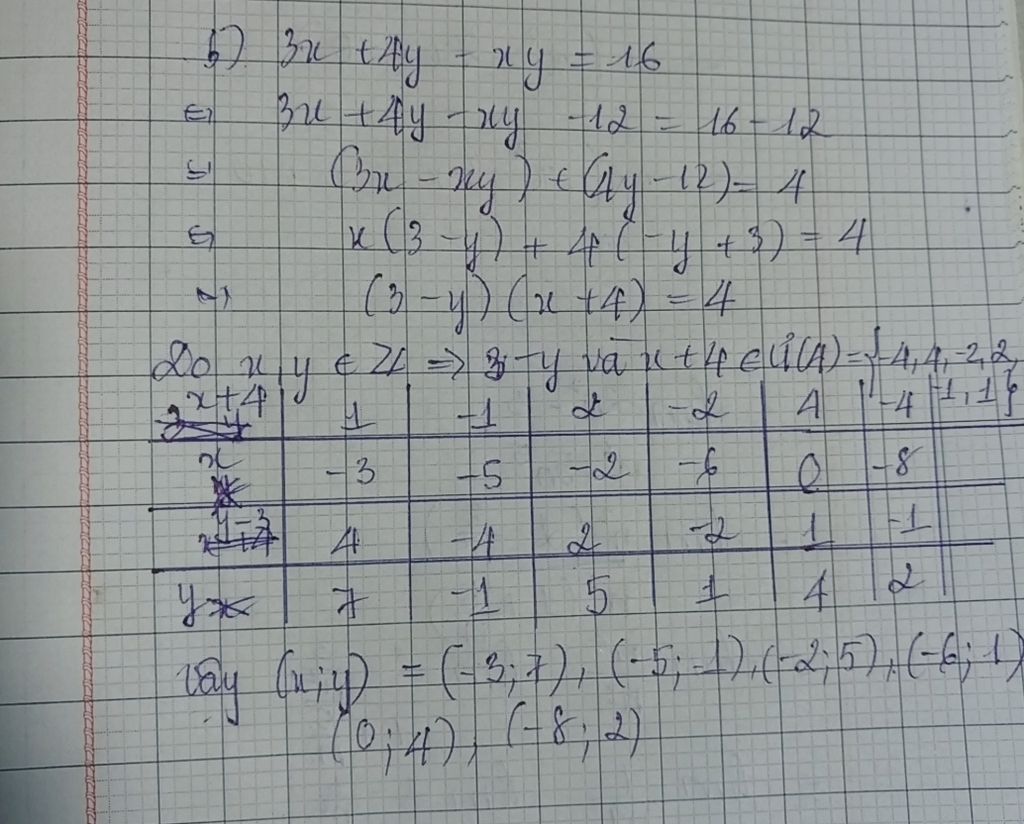 b) 3x + 4y - xy = 16
⇔ 3x + 4y - xy - 12 = 16 - 12
⇔ (3x - xy) + (4y - 12) = 4
⇔ x(3 - y) + 4(-y + 3) = 4
⇔ (3 - y)(x + 4) = 4
Do x, y ∈ Z => 3 - y và x + 4 ∈ Ư(4) = {-4, 4, -2, 2,
-1, 1}
x+4 | 1 | -1 | 2 | -2 | 4 | -4
x | -3 | -5 | -2 | -6 | 0 | -8
y-3 | 4 | -4 | 2 | -2 | 1 | -1
y | 7 | -1 | 5 | 1 | 4 | 2
Vậy (x;y) = (-3;7), (-5;-1), (-2;5), (-6;1)
(0;4), (-8;2)